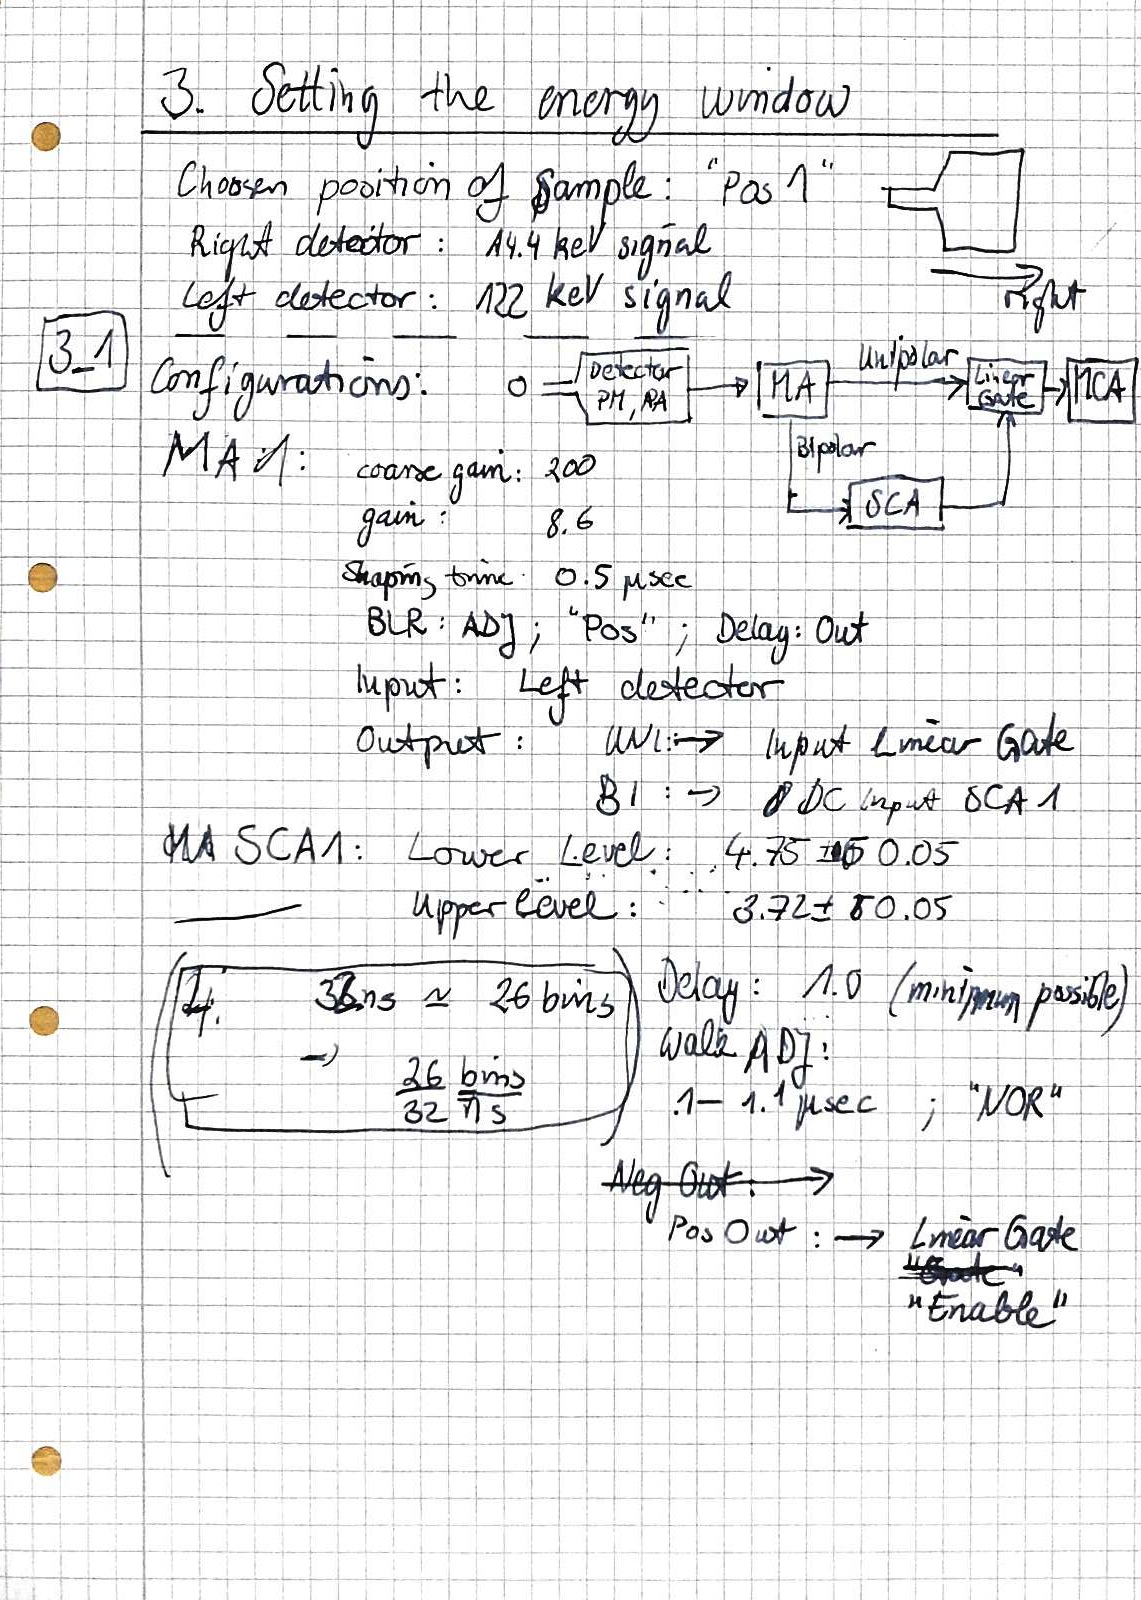 3. Setting the energy window
Choosen position of Sample: "Pos 1"
Right detector: 14.4 keV signal
Left detector: 122 keV signal
right
3_1
Configurations:
Detector
PM, PA
MA
Unipolar
Linear
Gate
MCA
Bipolar
SCA
MA 1:
coarse gain: 200
gain: 8.6
Shaping time 0.5 μsec
BLR: ADJ; "Pos"; Delay: Out
Input: Left detector
Output: UNI: → Input Linear Gate
BI: → DC Input SCA 1
SCA1: Lower Level: 4.75 ± 0.05
Upper level: 3.72 ± 0.05
4. 32ns ≃ 26 bins
→ 26/32 bins/ns
Delay: 1.0 (minimum possible)
Walk ADJ:
.1 – 1.1 μsec ; "NOR"
Neg Out: →
Pos Out: → Linear Gate
"Gate"
"Enable"